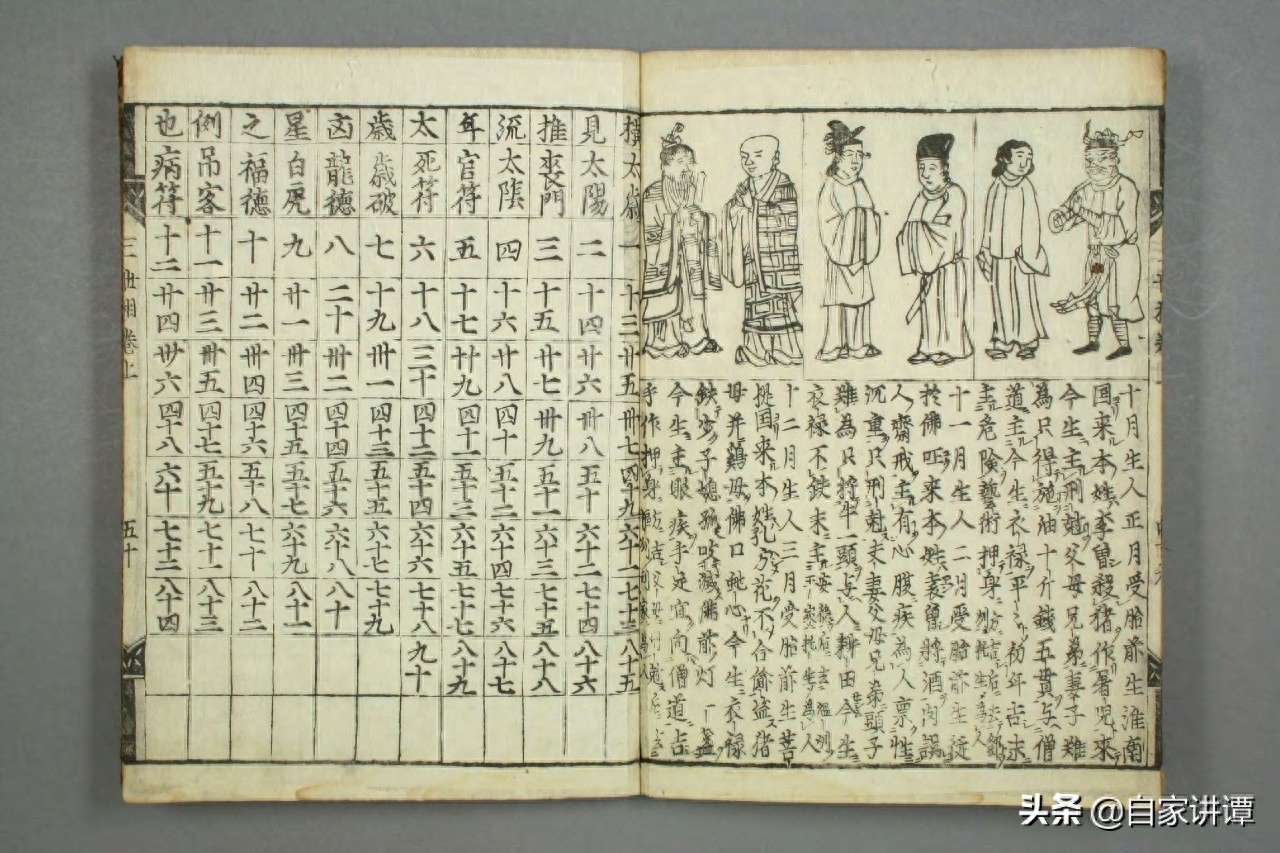 十月生人正月受胎前生淮南
国来本姓李曽殺猪作署児來
今生主刑尅父母兄弟妻子難
為只得施油十斤錢五貫与僧
道主今生衣禄平初年吉末
主危険藝術押身
十一月生人二月受胎前生徒
於佛呾来本姓裴曽將酒肉誤
人齋戒主有心腹疾為人禀性
沉重只刑尅夫妻父母兄弟頭子
雖為只捋牛一頭与人耕田今生
衣禄不鉄末主
十二月生人三月受胎前生菩
提国来本姓孔花不合偷盗猪
母并鶏母佛口蛇心今生衣禄
鉄少子媳孤吹滅佛前灯一盏
今生主眼疾手足宜向僧道占
手作押身
横太歳 一 十三 廿五 卅七 四十九 六十一 七十三 八十五
見太陽 二 十四 廿六 卅八 五十 六十二 七十四 八十六
推喪門 三 十五 廿七 卅九 五十一 六十三 七十五 八十八
流太陰 四 十六 廿八 四十 五十二 六十四 七十六 八十七
年官符 五 十七 廿九 四十一 五十三 六十五 七十七 八十九
太死符 六 十八 三十 四十二 五十四 六十六 七十八 九十
歳歳破 七 十九 卅一 四十三 五十五 六十七 七十九
凶龍德 八 二十 卅二 四十四 五十六 六十八 八十
星白虎 九 廿一 卅三 四十五 五十七 六十九 八十一
之福德 十 廿二 卅四 四十六 五十八 七十 八十二
例吊客 十一 廿三 卅五 四十七 五十九 七十一 八十三
也病符 十二 廿四 卅六 四十八 六十 七十二 八十四
三世相卷上 五十
头条 @自家讲谭